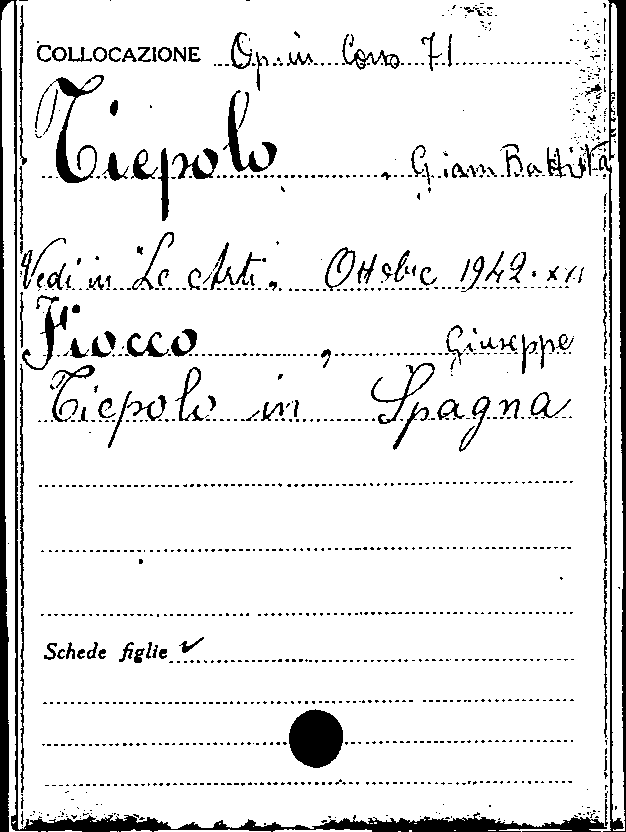 COLLOCAZIONE Op. in Corso 71
Tiepolo, Giam Battista
Vedi in "Le Arti" Ottobre 1942. XXI
Fiocco, Giuseppe
Tiepolo in Spagna
Schede figlie ✓